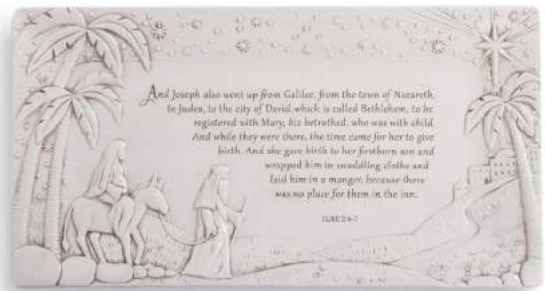 And Joseph also went up from Galilee, from the town of Nazareth,
to Judea, to the city of David, which is called Bethlehem, to be
registered with Mary, his betrothed, who was with child.
And while they were there, the time came for her to give
birth. And she gave birth to her firstborn son and
wrapped him in swaddling cloths and
laid him in a manger, because there
was no place for them in the inn.
LUKE 2:4-7